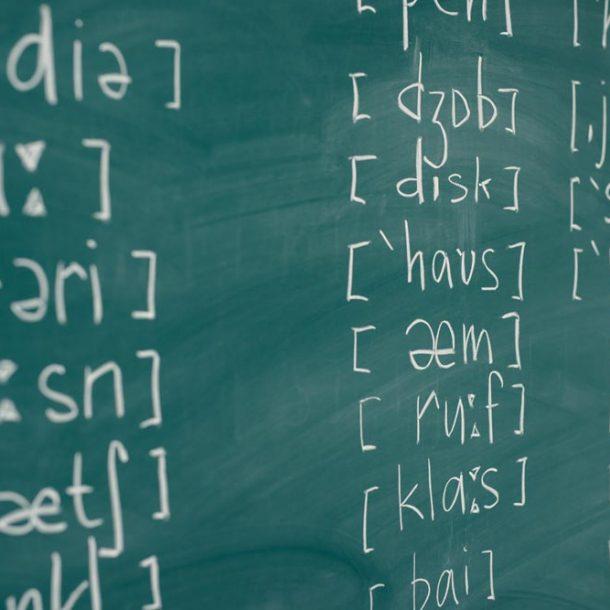 diə ]
ː ]
əri ]
ːsn ]
ætʃ ]
[ pen ]
[ dʒɒb ]
[ disk ]
[ˋhaʊs ]
[ æm ]
[ ruːf ]
[ klaːs ]
[ bai ]